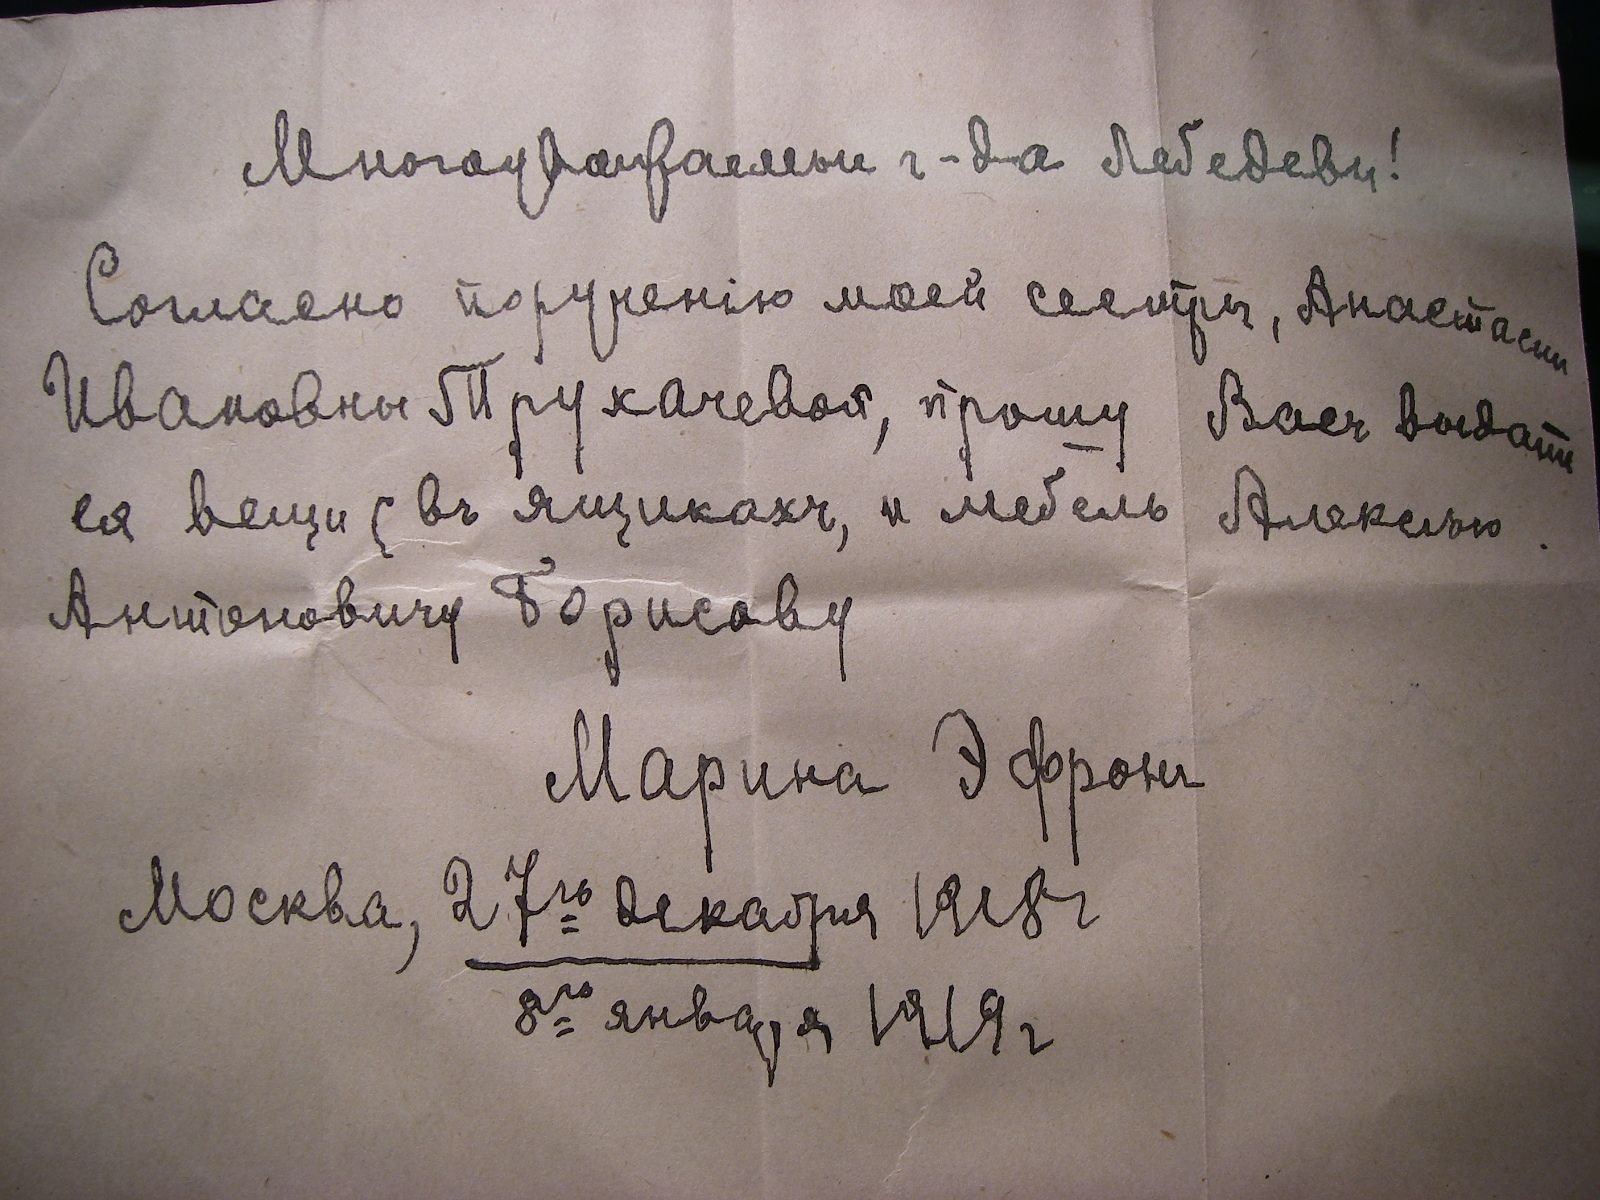 Многоуважаемыи г-да Лебедевы!
Согласно порученію моей сестры, Анастасіи
Ивановны Трухачевой, прошу Васъ выдать
ея вещи (въ ящикахъ, и мебель Алексѣю
Антоновичу Борисову
Марина Эфронъ
Москва, 27го декабря 1918г
8го января 1919г